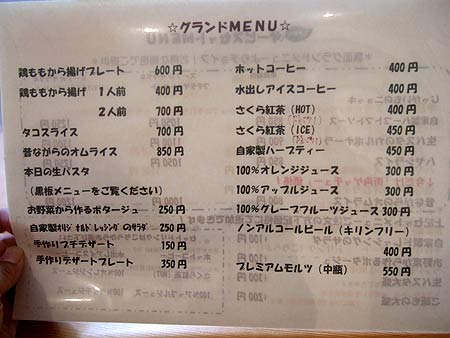 ☆グランドMENU☆
鶏ももから揚げプレート 600円
鶏ももから揚げ 1人前 400円
2人前 700円
タコスライス 700円
昔ながらのオムライス 850円
本日の生パスタ
（黒板メニューをご覧ください）
お野菜から作るポタージュ 250円
自家製オリジナルドレッシングのサラダ 250円
手作りプチデザート 150円
手作りデザートプレート 350円
ホットコーヒー 400円
水出しアイスコーヒー 400円
さくら紅茶（HOT） 400円
さくら紅茶（ICE） 450円
自家製ハーブティー 450円
100％オレンジジュース 300円
100％アップルジュース 300円
100％グレープフルーツジュース 300円
ノンアルコールビール（キリンフリー）
400円
プレミアムモルツ（中瓶） 550円